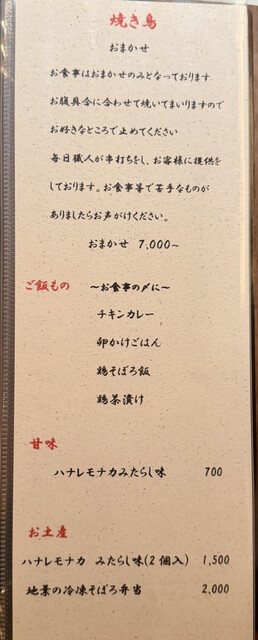 焼き鳥
おまかせ
お食事はおまかせのみとなっております。
お腹具合に合わせて焼いてまいりますので
お好きなところで止めてください
毎日職人が串打ちをし、お客様に提供を
しております。お食事等で苦手なものが
ありましたらお声がけください。
おまかせ 7,000~
ご飯もの ~お食事の〆に~
チキンカレー
卵かけごはん
鶏そぼろ飯
鶏茶漬け
甘味
ハナレモナカみたらし味 700
お土産
ハナレモナカ みたらし味(2個入) 1,500
地葉の冷凍そぼろ弁当 2,000